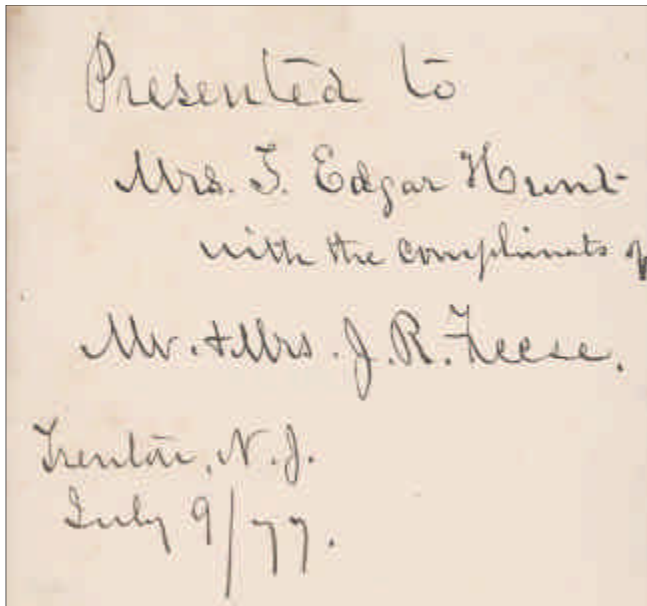 Presented to
Mrs. T. Edgar Hunt
with the complimats of
Mr. & Mrs. J. R. Feese.
Trenton, N. J.
July 9/77.